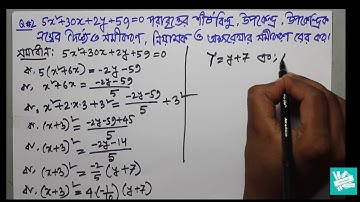 Q#2 5x²+30x+2y+59=0 পরাবৃত্তের শীর্ষবিন্দু, উপকেন্দ্র, উপকেন্দ্রিক
লম্বের দৈর্ঘ্য ও সমীকরণ, নিয়ামক ও অক্ষরেখার সমীকরণ বের কর।
সমাধান: 5x²+30x+2y+59=0
বা, 5(x²+6x) = -2y-59
বা, x²+6x = (-2y-59)/5
বা, x²+2·x·3+3² = (-2y-59)/5 + 3²
বা, (x+3)² = (-2y-59+45)/5
বা, (x+3)² = (-2y-14)/5
বা, (x+3)² = -2/5 (y+7)
বা, (x+3)² = 4(-1/10)(y+7)
Y = y+7 এবং,